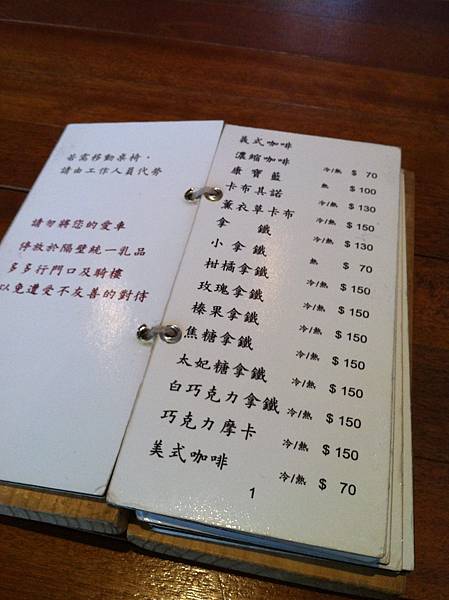 若需移動桌椅，
請由工作人員代勞
請勿將您的愛車
停放於隔壁統一乳品
多多行門口及騎樓
以免遭受不友善的對待
義式咖啡
濃縮咖啡 冷/熱 $ 70
康寶藍 熱 $ 100
卡布其諾 冷/熱 $ 130
薰衣草卡布 冷/熱 $ 150
拿鐵 冷/熱 $ 130
小拿鐵 熱 $ 70
柑橘拿鐵 冷/熱 $ 150
玫瑰拿鐵 冷/熱 $ 150
榛果拿鐵 冷/熱 $ 150
焦糖拿鐵 冷/熱 $ 150
太妃糖拿鐵 冷/熱 $ 150
白巧克力拿鐵 冷/熱 $ 150
巧克力摩卡 冷/熱 $ 150
美式咖啡 冷/熱 $ 70
1